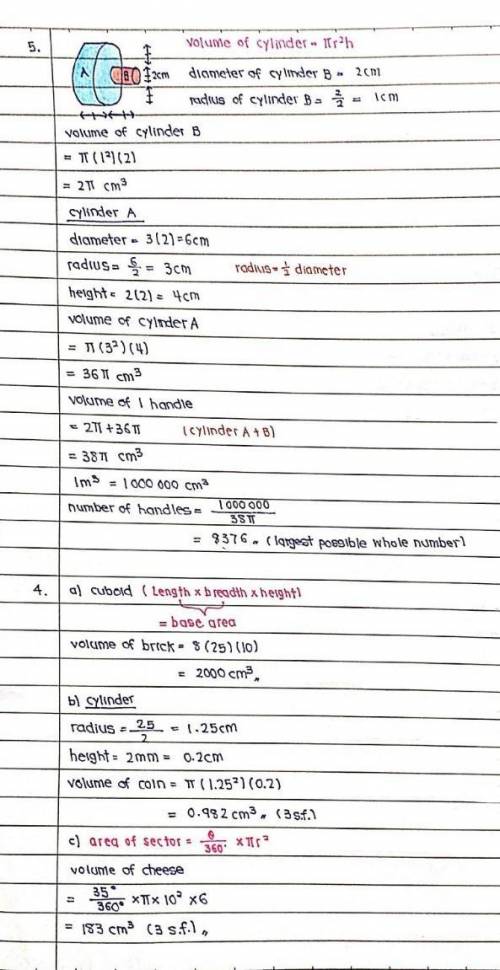 5.
A B 2cm
volume of cylinder = πr²h
diameter of cylinder B = 2cm
radius of cylinder B = 2/2 = 1cm
volume of cylinder B
= π(1²)(2)
= 2π cm³
cylinder A
diameter = 3(2)=6cm
radius = 6/2 = 3cm radius = 1/2 diameter
height = 2(2) = 4cm
volume of cylinder A
= π(3²)(4)
= 36π cm³
volume of 1 handle
= 2π + 36π (cylinder A + B)
= 38π cm³
1m³ = 1 000 000 cm³
number of handles = 1 000 000/38π
= 8376 (largest possible whole number)
4. a) cuboid (length x breadth x height)
= base area
volume of brick = 8(25)(10)
= 2000cm³
b) cylinder
radius = 25/2 = 1.25cm
height = 2mm = 0.2cm
volume of coin = π(1.25²)(0.2)
= 0.982cm³ (3s.f.)
c) area of sector = θ/360° × πr²
volume of cheese
= 35°/360° × π × 10² × 6
= 183 cm³ (3 s.f.)